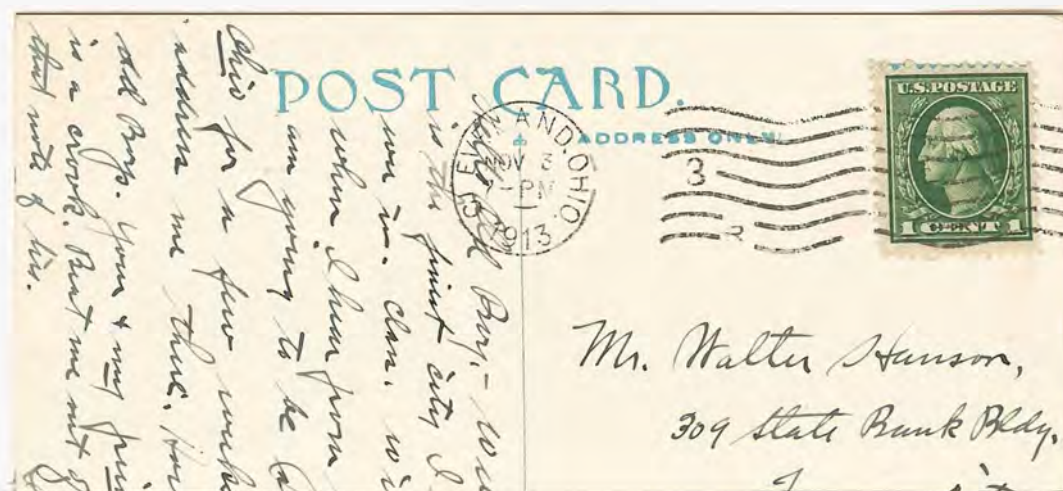 POST CARD.
ADDRESS ONLY
CLEVELAND, OHIO.
NOV 3
-PM
1913
3
U.S. POSTAGE
1 CENT 1
Mr. Walter Hanson,
309 State Bank Bldg.
Hello Old Boy, -
is the finest city I
ever in.
when I hear from
am going to be
Ohio for a few weeks
address me there.
old Boy. Your & my
is a crook. Beat me out
that note of his.